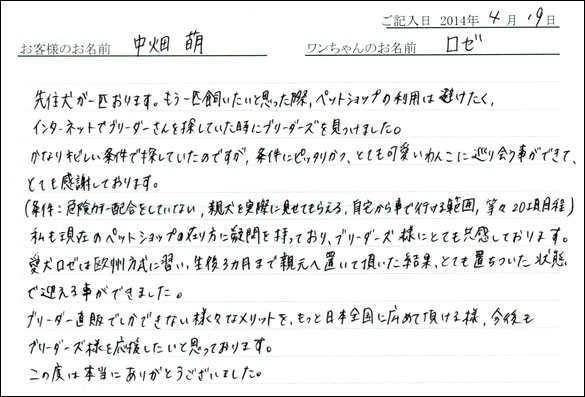 ご記入日 2014年 4月 19日
お客様のお名前 中畑 萌 ワンちゃんのお名前 ロゼ
先住犬が一匹おります。もう一匹飼いたいと思った際、ペットショップの利用は避けたく、
インターネットでブリーダーさんを探していた時にブリーダーズを見つけました。
かなりキビしい条件で探していたのですが、条件にピッタリかつ、とても可愛いわんこに巡り会う事ができて、
とても感謝しております。
(条件:危険カラー配合をしていない、親犬を実際に見せてもらえる、自宅から車で行ける範囲、等々20項目程)
私も現在のペットショップの在り方に疑問を持っており、ブリーダーズ様にとても共感しております。
愛犬ロゼは欧州方式に習い、生後3ヵ月まで親元へ置いて頂いた結果、とても落ちついた状態
で迎える事ができました。
ブリーダー直販でしかできない様々なメリットを、もっと日本全国に広めて頂ける様、今後も
ブリーダーズ様を応援したいと思っております。
この度は本当にありがとうございました。